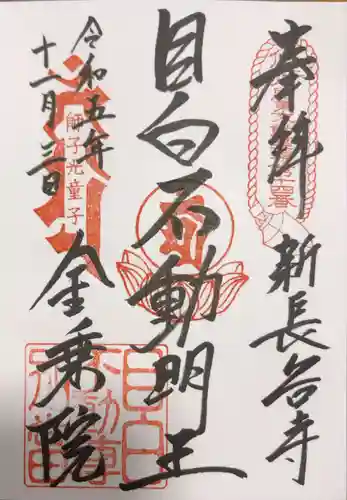 奉拝
新長谷寺
目白不動明王
令和五年
十一月三日
師子光童子
金乗院